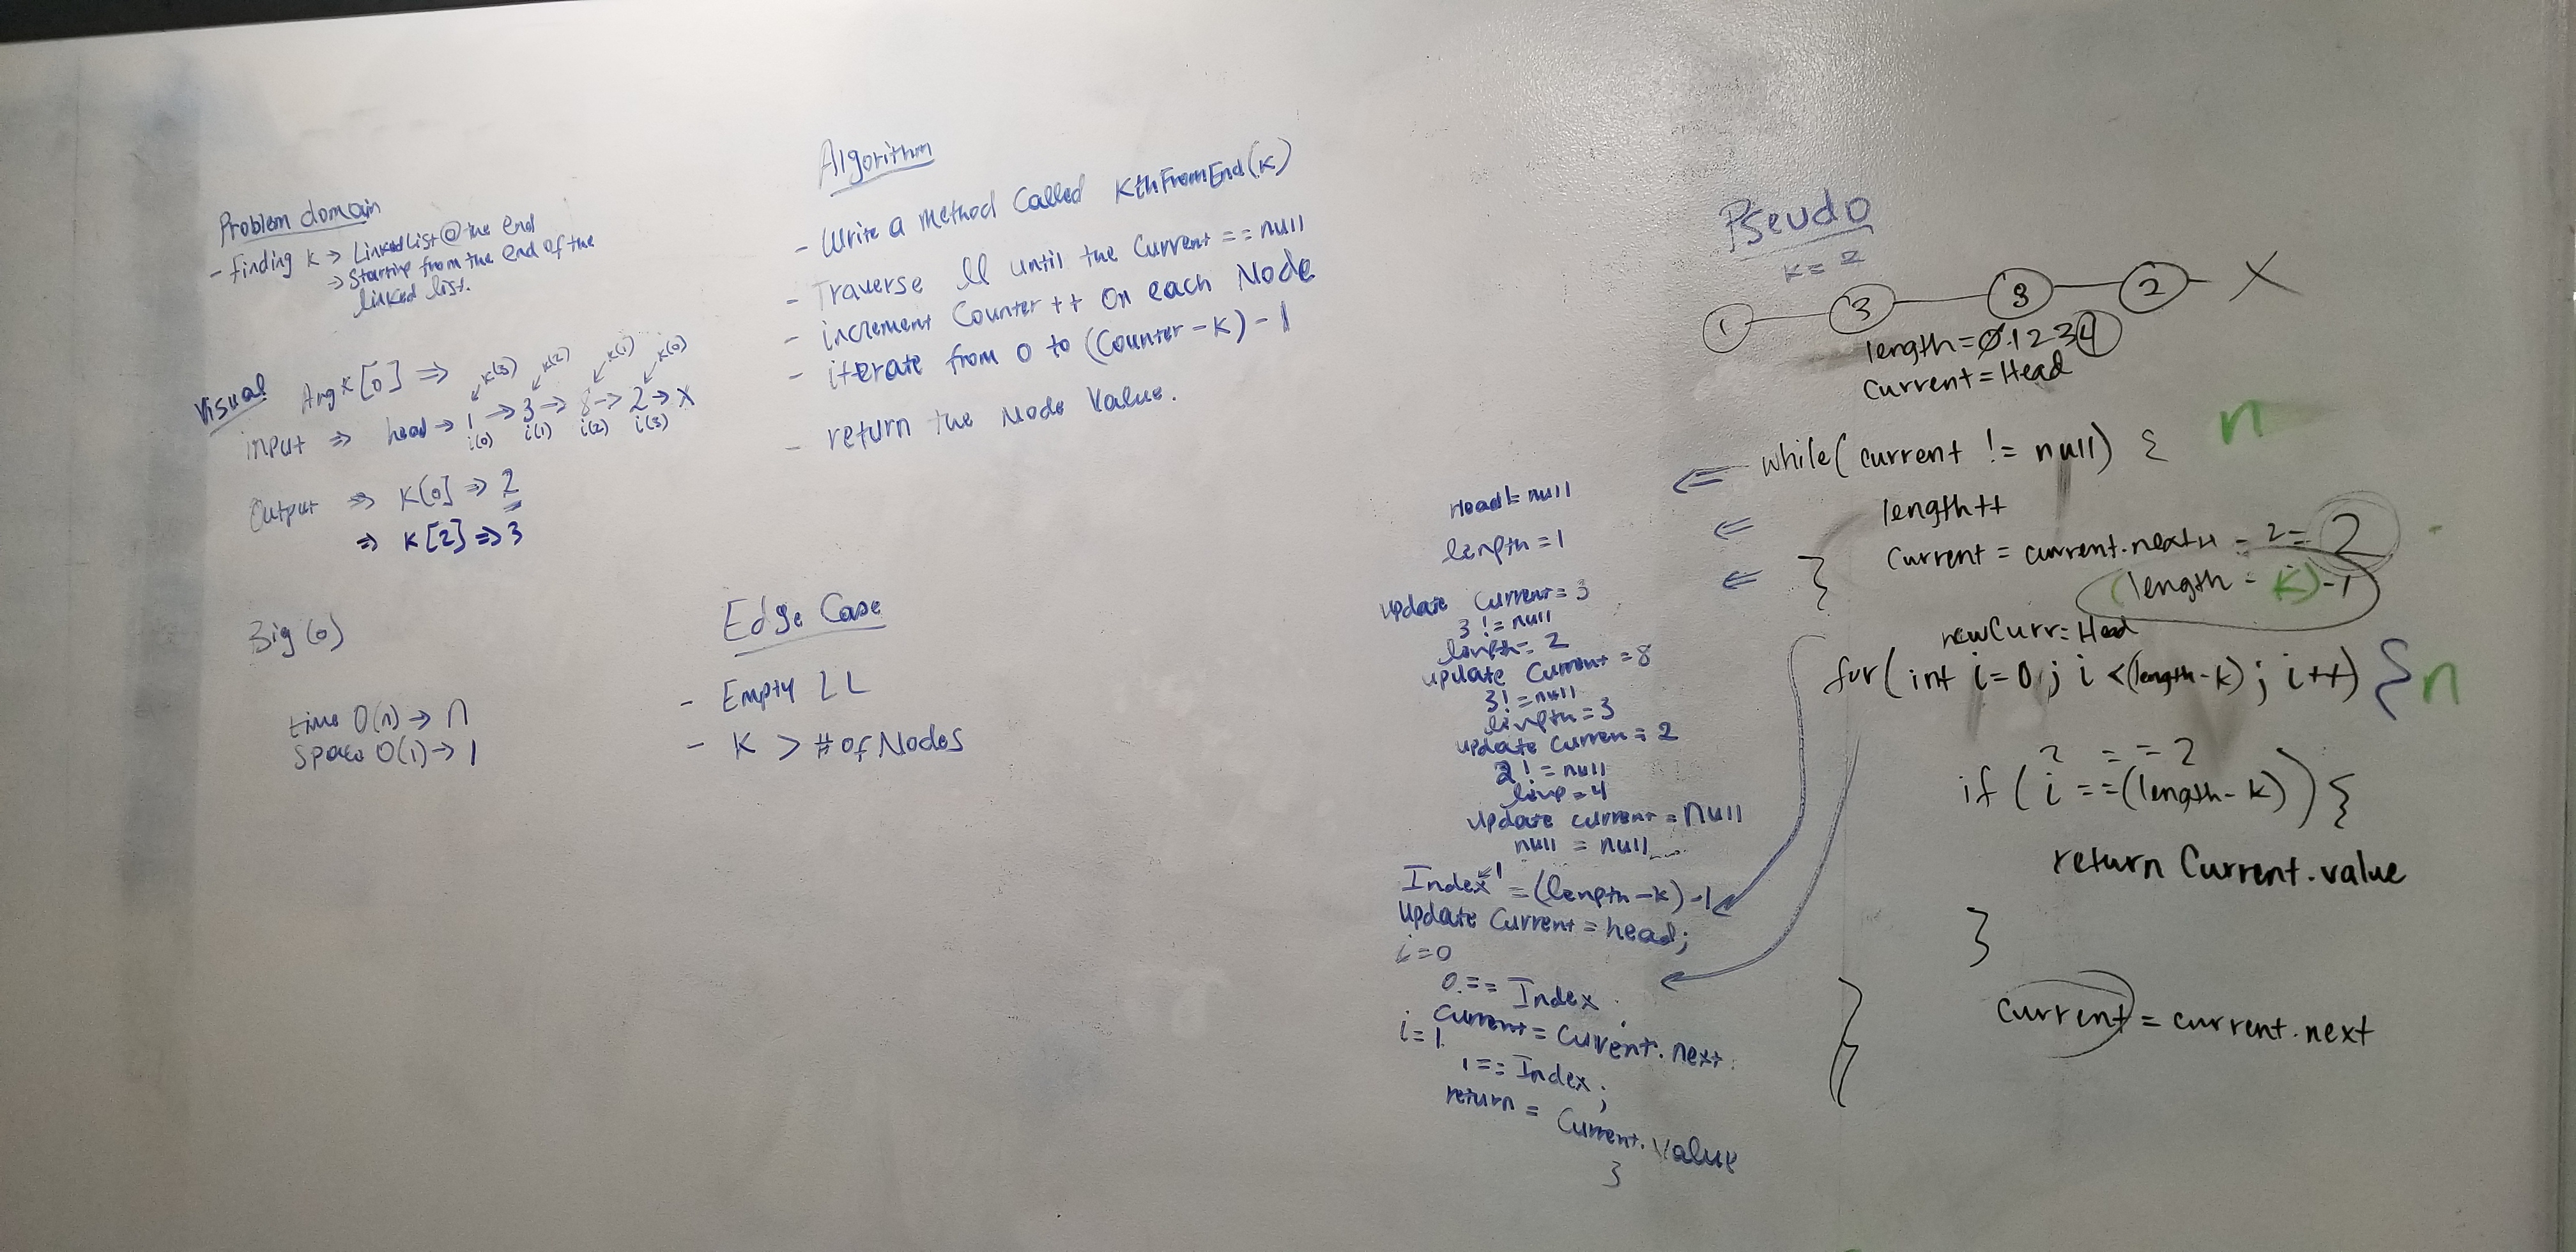 Problem domain
- Finding k → Linked List @ the end
→ Starting from the end of the
linked list.
Visual Arg k [0] ⇒
k(3) k(2) k(1) k(0)
input ⇒ head → 1 → 3 → 8 → 2 → X
i(0) i(1) i(2) i(3)
Output ⇒ k[0] ⇒ 2
⇒ k[2] ⇒ 3
Big (o)
time O(n) → n
Space O(1) → 1
Algorithm
- Write a method Called KthFromEnd(k)
- Traverse ll until the Current == null
- increment Counter ++ On each Node
- iterate from 0 to (Counter - k) - 1
- return the Node Value.
Edge Case
- Empty LL
- K > # of Nodes
Head != null
length = 1
update Current = 3
3 != null
length = 2
update Current = 8
3 != null
length = 3
update Curren = 2
2 != null
= 4
update current = Null
null = null
Index = (length - k) - 1
Update Current = head;
i = 0
0 == Index
Current = Current.next
i = 1
1 == Index;
return = Current.Value
}
Pseudo
k = 2
1 3 8 2 X
length = 0 1 2 3 4
Current = Head
while( current != null) { n
length++
Current = current.next
4 - 2 = 2
} (length - k) - 1
newCurr = Head
for( int i = 0 ; i < (length - k) ; i++) { n
2 == 2
if ( i == (length - k) ) {
return Current.value
}
Current = current.next
}